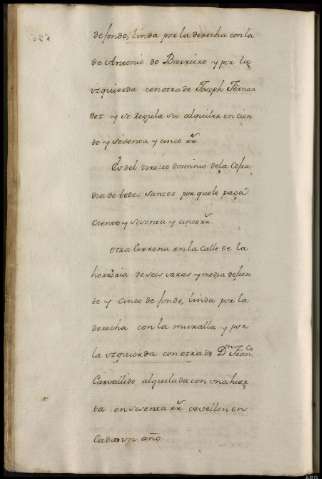 de fondo, linda por la derecha con la
de Antonio de Barreiro y por la
yzquierda con otra de Joseph Fernan
dez y se regula su alquiler en cien
to y sesenta y cinco rr.
Es del directo dominio de la Cofra
dia de todos Santos por que le paga
ciento y sesenta y cinco rr.
Otra terrena en la Calle de la
herreria de seis varas y media de fren
te y cinco de fondo, linda por la
derecha con la muralla y por
la yzquierda con otra de Dn. Juan
Carvallido alquilada con una huer
ta en sesenta rr. de vellon en
Cada un año